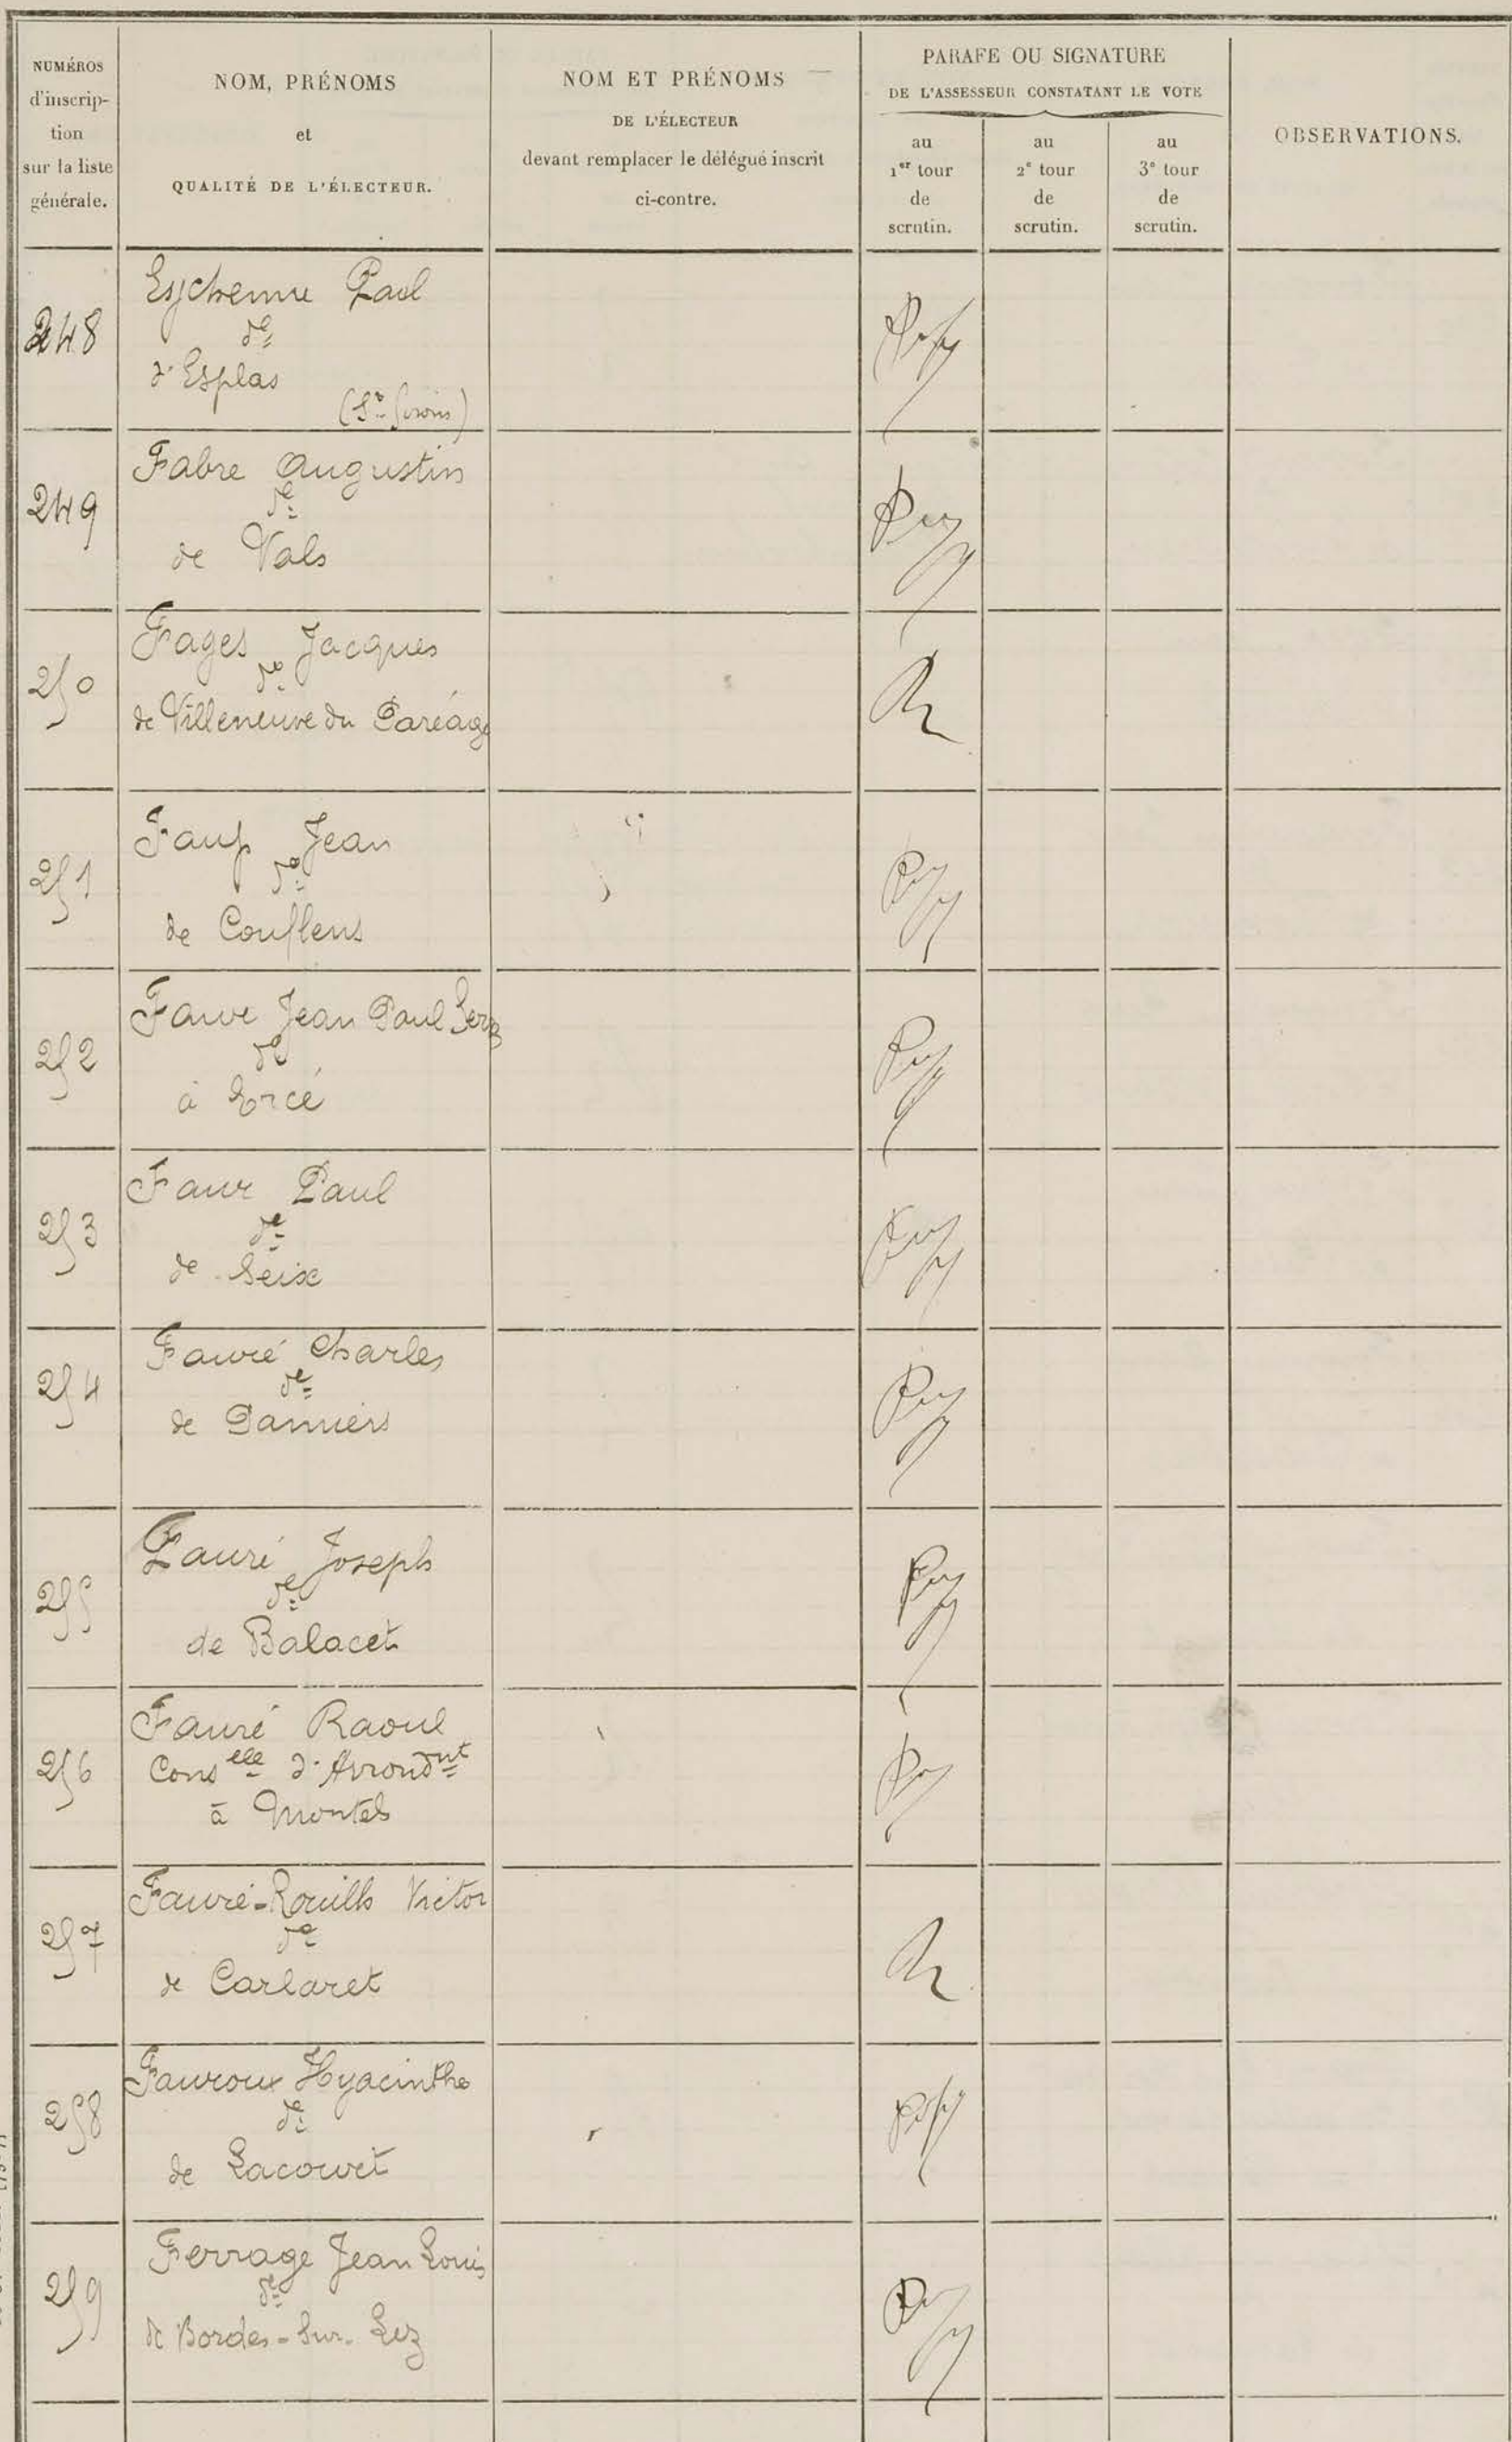 NUMÉROS
d'inscrip-
tion
sur la liste
générale.
NOM, PRÉNOMS
et
QUALITÉ DE L'ÉLECTEUR.
NOM ET PRÉNOMS
DE L'ÉLECTEUR
devant remplacer le délégué inscrit
ci-contre.
PARAFE OU SIGNATURE
DE L'ASSESSEUR CONSTATANT LE VOTE
au
1er tour
de
scrutin.
au
2e tour
de
scrutin.
au
3e tour
de
scrutin.
OBSERVATIONS.
248
Eychenne Paul
de
d'Esplas
(St Girons)
249
Fabre Augustin
de
de Vals
250
Fages Jacques
de
de Villeneuve du Paréage
251
Faup Jean
de
de Couflens
252
Faure Jean Paul
de
à Ercé
253
Faur Paul
de
de Seix
254
Fauré Charles
de
de Pamiers
255
Fauré Joseph
de
de Balacet
256
Fauré Raoul
Conselle d'Arrondnt
à Montels
257
Fauré-Rouilh Victor
de
de Carlaret
258
Fauroux Hyacinthe
de
de Lacourt
259
Ferrage Jean Louis
de
de Bordes-sur-Lez